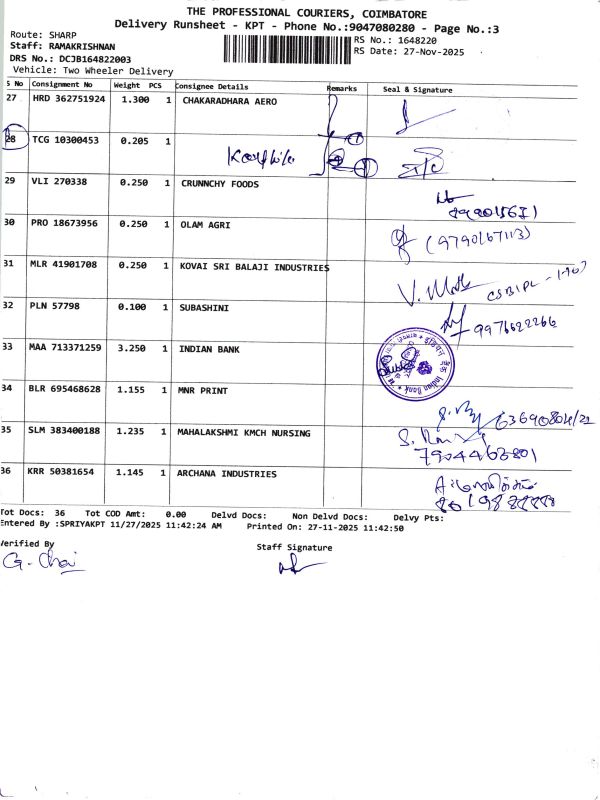 THE PROFESSIONAL COURIERS, COIMBATORE
Delivery Runsheet - KPT - Phone No.:9047080280 - Page No.:3
Route: SHARP
Staff: RAMAKRISHNAN
DRS No.: DCJB164822003
Vehicle: Two Wheeler Delivery
RS No.: 1648220
RS Date: 27-Nov-2025
S No Consignment No Weight PCS Consignee Details Remarks Seal & Signature
27 HRD 362751924 1.300 1 CHAKARADHARA AERO
28 TCG 10300453 0.205 1
29 VLI 270338 0.250 1 CRUNNCHY FOODS
30 PRO 18673956 0.250 1 OLAM AGRI (9790167113)
31 MLR 41901708 0.250 1 KOVAI SRI BALAJI INDUSTRIES
32 PLN 57798 0.100 1 SUBASHINI 9976622266
33 MAA 713371259 3.250 1 INDIAN BANK Indian Bank
34 BLR 695468628 1.155 1 MNR PRINT
35 SLM 383400188 1.235 1 MAHALAKSHMI KMCH NURSING
7904463801
36 KRR 50381654 1.145 1 ARCHANA INDUSTRIES
Tot Docs: 36 Tot COD Amt: 0.00 Delvd Docs: Non Delvd Docs: Delvy Pts:
Entered By :SPRIYAKPT 11/27/2025 11:42:24 AM Printed On: 27-11-2025 11:42:50
Verified By
Staff Signature